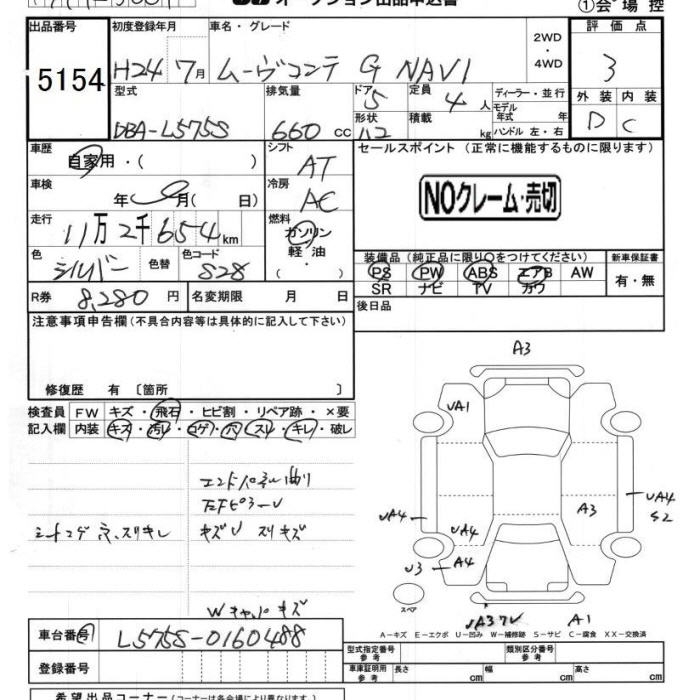 オークション出品申込書
①会場控
出品番号
5154
初度登録年月
H24 7月
車名・グレード
ムーヴコンテ G NAVI
2WD
・
4WD
評価点
3
型式
DBA-L575S
排気量
660 cc
ドア
5
形状
定員
4 人
積載
kg
ディーラー・並行
モデル年式 年
ハンドル 左・右
外装 内装
D C
車歴
自家用・( )
シフト
AT
セールスポイント(正常に機能するものに限ります)
NOクレーム・売切
車検
年 月( 日)
冷房
AC
走行
11万2千654km
燃料
ガソリン
軽油
( )
色
シルバー
色替
色コード
S28
装備品(純正品に限り○をつけてください)
新車保証書
PS PW ABS エアB AW
有・無
SR ナビ TV カワ
R券 8,280円
名変期限 月 日
後日品
注意事項申告欄(不具合内容等は具体的に記入して下さい)
修復歴 有 〔箇所 〕
検査員 FW キズ・飛石・ヒビ割・リペア跡・×要
記入欄 内装 キズ・汚レ・コゲ・穴・スレ・キレ・破レ
エンドパネル曲り
左Fピラー U
シートコゲ 穴、スリキレ
キズU スリキズ
Wキャッパキズ
A3
UA1
UA4
UA4
U3
A4
A3
UA4
S2
スペア
UA3 7V
A1
A-キズ E-エクボ U-凹み W-補修跡 S-サビ C-腐食 XX-交換済
車台番号
L575S-0160488
登録番号
型式指定番号
参考
類別区分番号
参考
車庫証明用
参考
長さ cm
幅 cm
高さ cm
希望出品コーナー(コーナーは各会場により異なります)